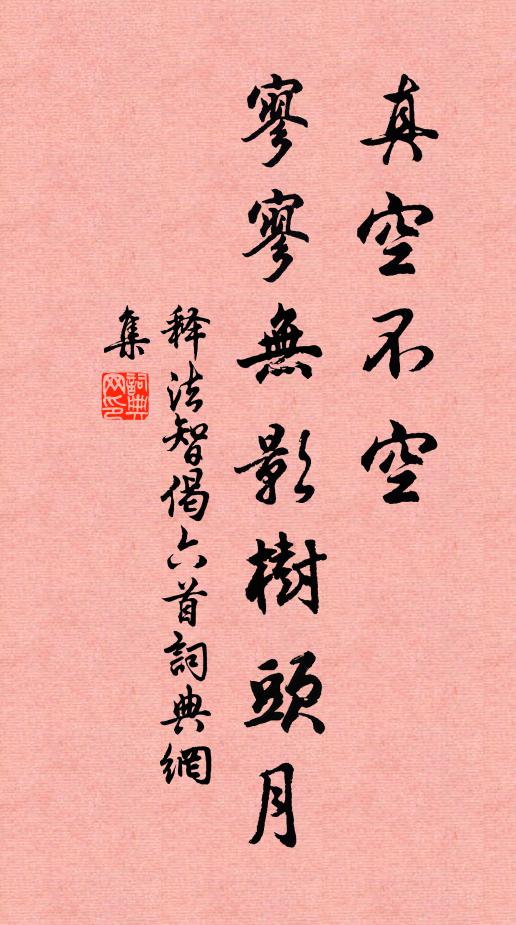 真空不空
寥寥無影樹頭月
释法智偈六首詞典網
集
詞典网印